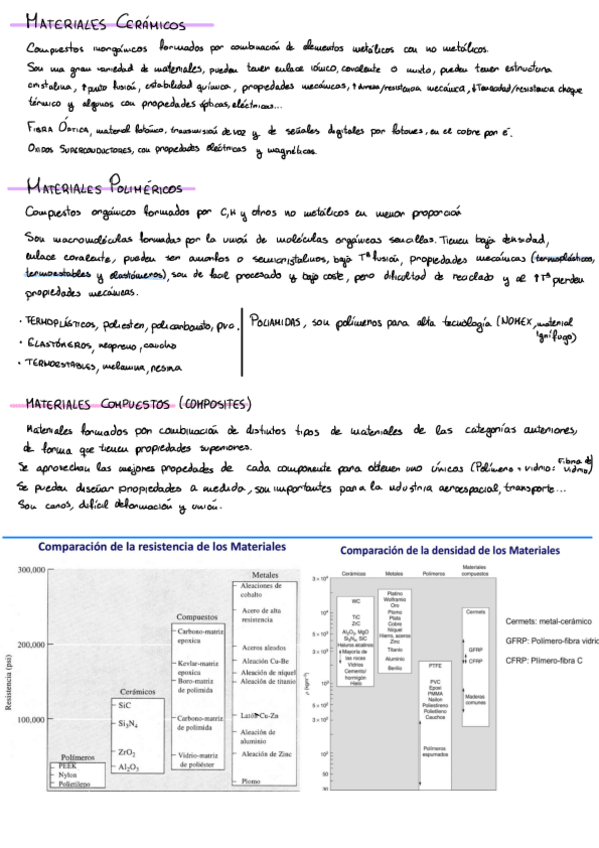 MATERIALES CERÁMICOS
Compuestos inorgánicos formados por combinación de elementos metálicos con no metálicos.
Son una gran variedad de materiales, pueden tener enlace iónico, covalente o mixto, pueden tener estructura
cristalina, ↑punto fusión, estabilidad química, propiedades mecánicas, ↑dureza/resistencia mecánica, ↓Tenacidad/resistencia choque
térmico y algunos con propiedades ópticas, eléctricas...
FIBRA ÓPTICA, material fotónico, transmisión de voz y de señales digitales por fotones, en el cobre por é.
OXIDOS SUPERCONDUCTORES, con propiedades eléctricas y magnéticas.
MATERIALES POLIMÉRICOS
Compuestos orgánicos formados por C, H y otros no metálicos en menor proporción
Son macromoléculas formadas por la unión de moléculas orgánicas sencillas. Tienen baja densidad,
enlace covalente, pueden ser amorfos o semicristalinos, baja Tª fusión, propiedades mecánicas (termoplásticos,
termoestables y elastómeros), son de facil procesado y bajo coste, pero dificultad de reciclado y al ↑Tª pierden
propiedades mecánicas.
· TERMOPLÁSTICOS, poliester, policarbonato, pvc.
· ELASTÓMEROS, neopreno, caucho
· TERMOESTABLES, melamina, resina
POLIAMIDAS, son polímeros para alta tecnología (NOMEX, material
ignífugo)
MATERIALES COMPUESTOS (COMPOSITES)
Materiales formados por combinación de distintos tipos de materiales de las categorías anteriores,
de forma que tienen propiedades superiores.
Se aprovechan las mejores propiedades de cada componente para obtener uno únicas (Polímero + vidrio: Fibra de vidrio)
Se pueden diseñar propiedades a medida, son importantes para la industria aeroespacial, transporte...
Son caros, difícil deformación y unión.
Comparación de la resistencia de los Materiales
Resistencia (psi)
300,000
200,000
100,000
Polímeros
PEEK
Nylon
Polietileno
Cerámicos
SiC
Si₃N₄
ZrO₂
Al₂O₃
Compuestos
Carbono-matriz
epoxica
Kevlar-matriz
epoxica
Boro-matriz
de polimida
Carbono-matriz
de polimida
Vidrio-matriz
de poliéster
Metales
Aleaciones de
cobalto
Acero de alta
resistencia
Aceros aleados
Aleación Cu-Be
Aleación de níquel
Aleación de titanio
Latón Cu-Zn
Aleación de
aluminio
Aleación de Zinc
Plomo
Comparación de la densidad de los Materiales
Cerámicos
Metales
Polímeros
Materiales
compuestos
3 × 10⁴
10⁴
5 × 10³
3 × 10³
10³
5 × 10²
3 × 10²
10²
50
30
WC
TiC
ZrC
Al₂O₃, MgO
Si₃N₄, SiC
Haluros alcalinos
Mayoría de
las rocas
Vidrios
Cemento/
hormigón
Hielo
Platino
Wolframio
Oro
Plomo
Plata
Cobre
Níquel
Hierro, aceros
Zinc
Titanio
Aluminio
Berilio
PTFE
PVC
Epoxi
PMMA
Nailon
Poliestireno
Polietileno
Cauchos
Polímeros
espumados
Cermets
GFRP
CFRP
Maderas
comunes
Cermets: metal-cerámico
GFRP: Polimero-fibra vidrio
CFRP: Plimero-fibra C